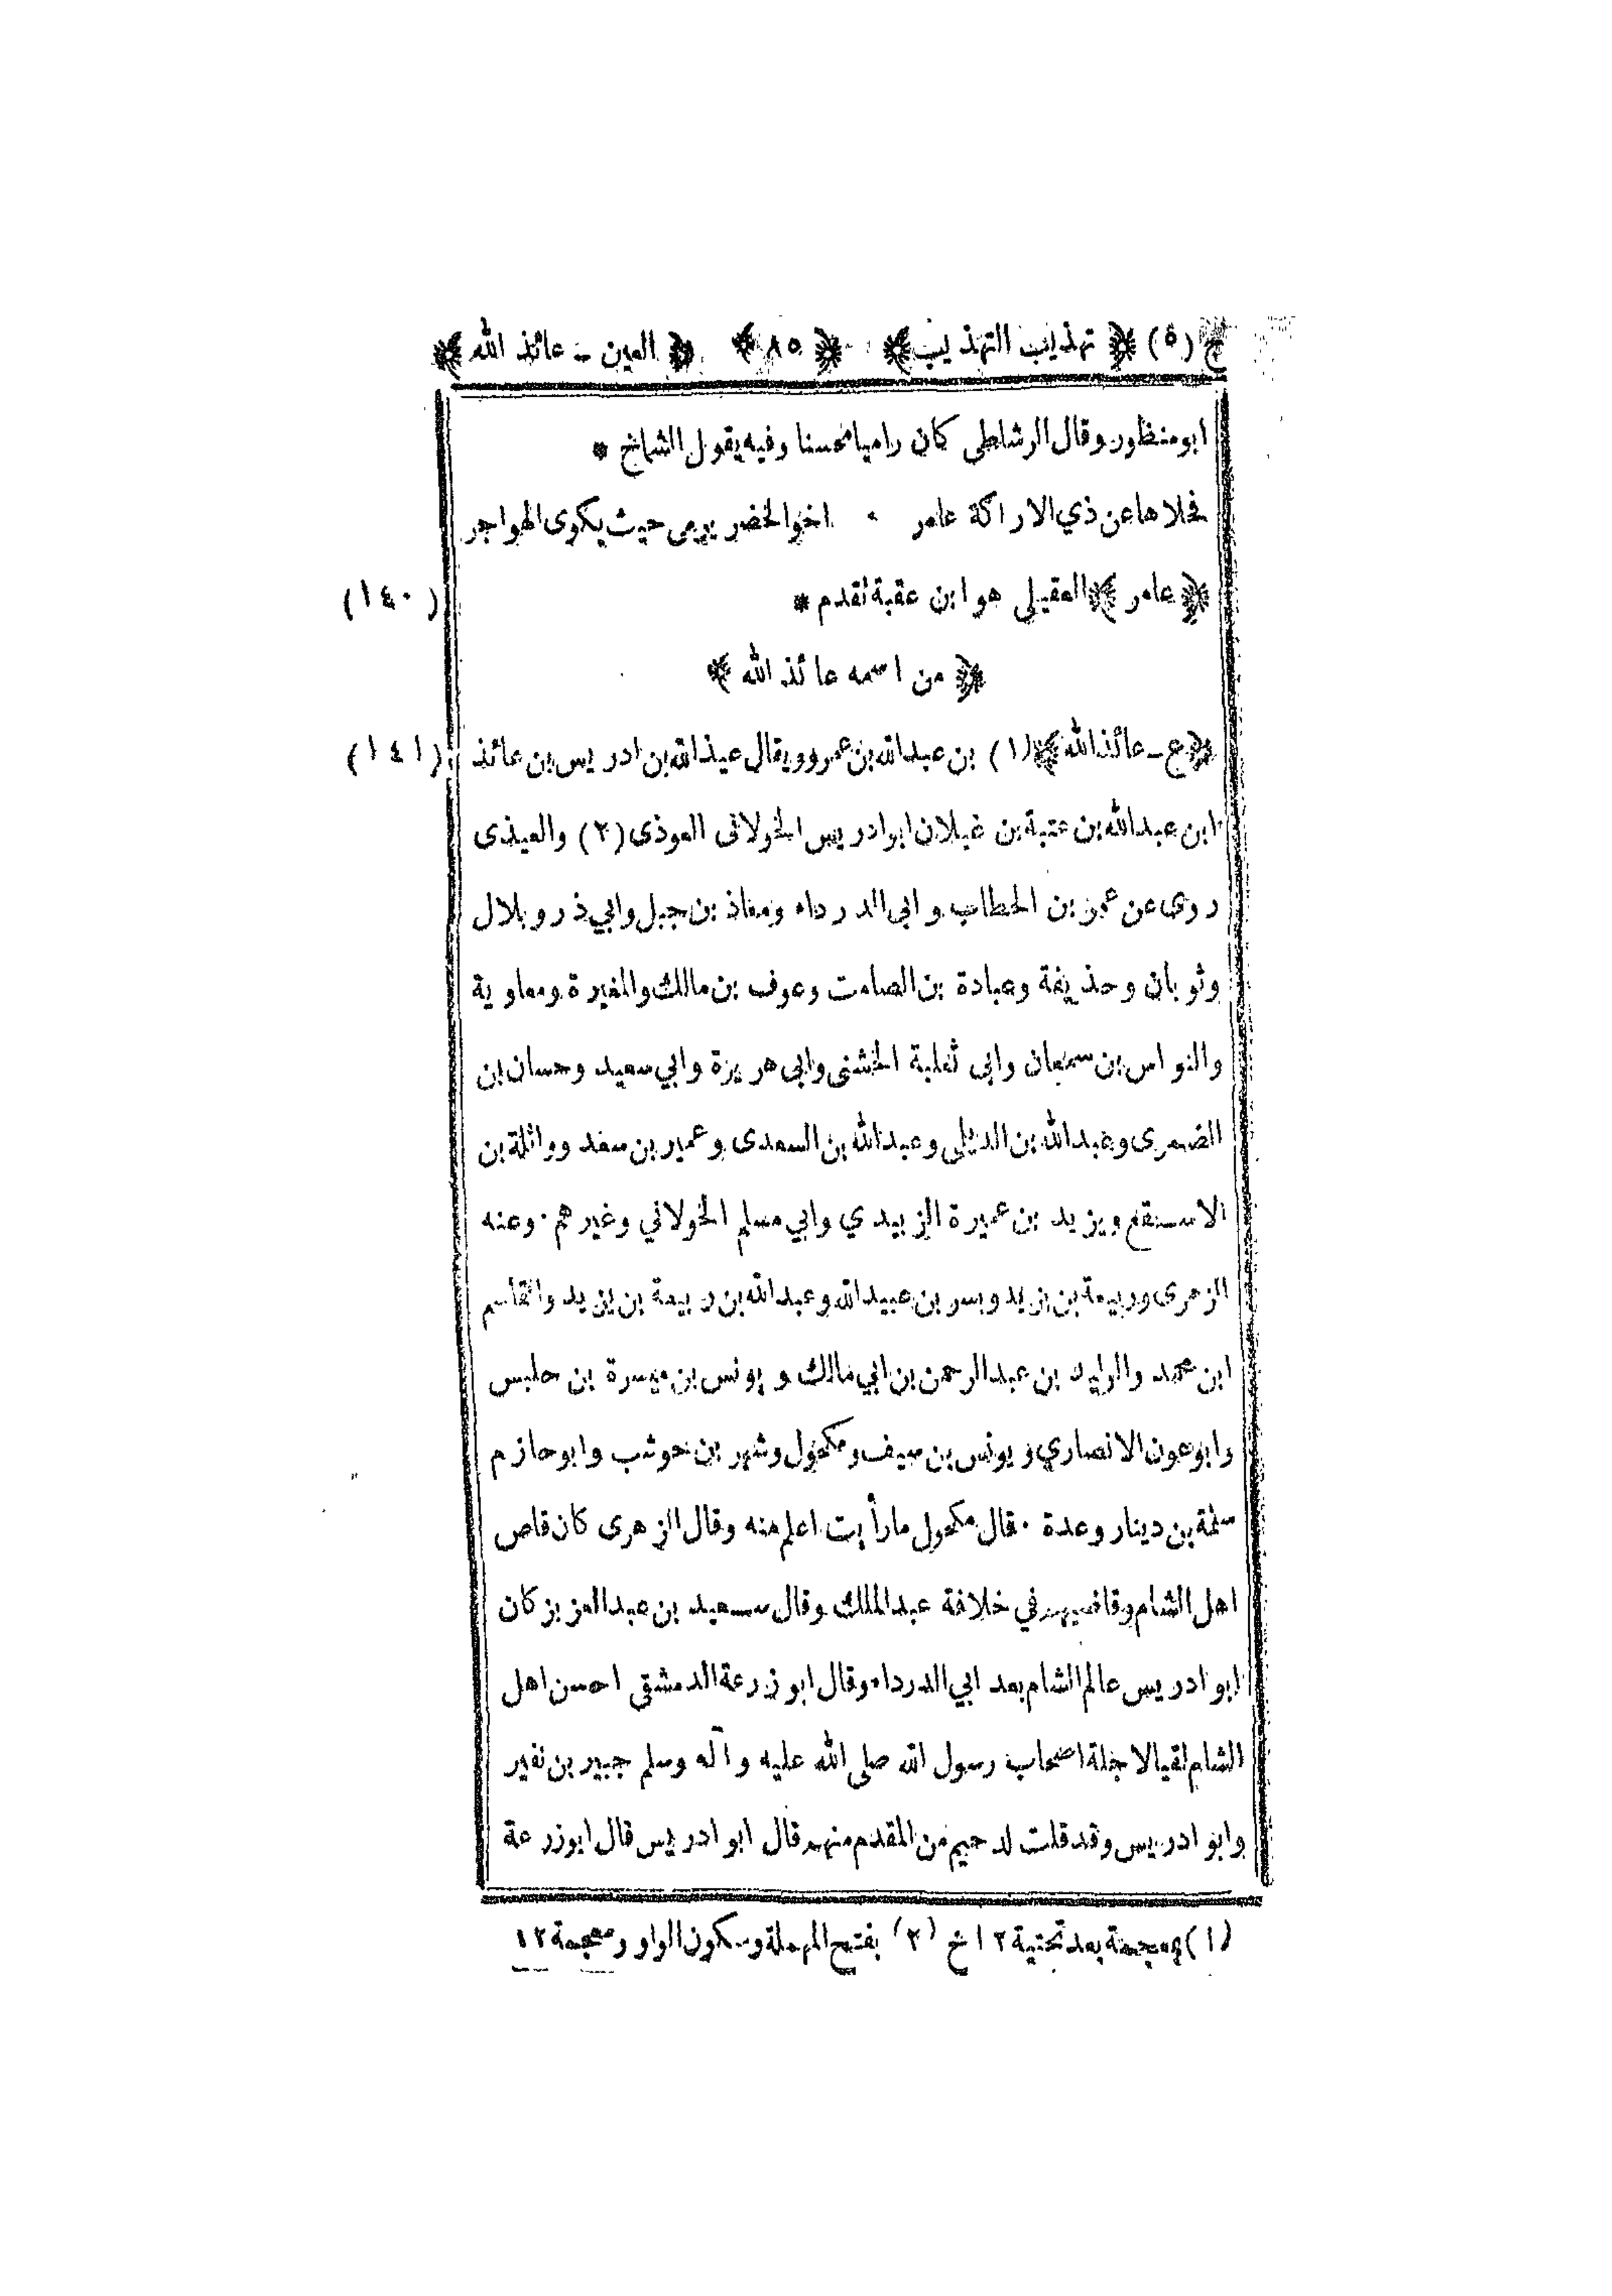 ج (٥) ﴿ تهذيب التهذيب ﴾ ﴿ ٨٥ ﴾ ﴿ العين - عائذ الله ﴾
ابو منظور وقال الرشاطى كان راميا محسنا وفيه يقول الشماخ *
فحلاها عن ذي الاراكة عامر ٠ اخو الخضر يرمى حيث يكوى الهواجر
﴿ عامر ﴾ العقيلى هو ابن عقبة تقدم *
(١٤٠)
﴿ من اسمه عائذ الله ﴾
﴿ ع - عائذ الله ﴾ (١) بن عبد الله بن عمرو ويقال عيذ الله بن ادريس بن عائذ
(١٤١)
ابن عبد الله بن عتبة بن غيلان ابو ادريس الخولانى العوذى (٢) والعيذى
روى عن عمر بن الخطاب وابى الدرداء ومعاذ بن جبل وابي ذر وبلال
وثوبان وحذيفة وعبادة بن الصامت وعوف بن مالك والمغيرة ومعاوية
والنواس بن سمعان وابى ثعلبة الخشنى وابى هريرة وابي سعيد وحسان بن
الضمرى وعبد الله بن الديلى وعبد الله بن السعدى وعمير بن سعد وواثلة بن
الاسقع ويزيد بن عميرة الزبيدي وابي مسلم الخولاني وغيرهم ٠ وعنه
الزهرى وربيعة بن يزيد وبسر بن عبيد الله وعبد الله بن ربيعة بن يزيد والقاسم
ابن محمد والوليد بن عبد الرحمن بن ابي مالك ويونس بن ميسرة بن حلبس
وابو عون الانصاري ويونس بن سيف ومكحول وشهر بن حوشب وابو حازم
سلمة بن دينار وعدة ٠ قال مكحول ما رأيت اعلم منه وقال الزهرى كان قاص
اهل الشام وقاضيهم في خلافة عبد الملك وقال سعيد بن عبد العزيز كان
ابو ادريس عالم الشام بعد ابي الدرداء وقال ابو زرعة الدمشقى احسن اهل
الشام لقيا لاجلة اصحاب رسول الله صلى الله عليه وآله وسلم جبير بن نفير
وابو ادريس وقد قلت لدحيم من المقدم منهم قال ابو ادريس قال ابو زرعة
(١) بمعجمة بعد تحتية ١٢ خ (٢) بفتح المهملة وسكون الواو ومعجمة ١٢